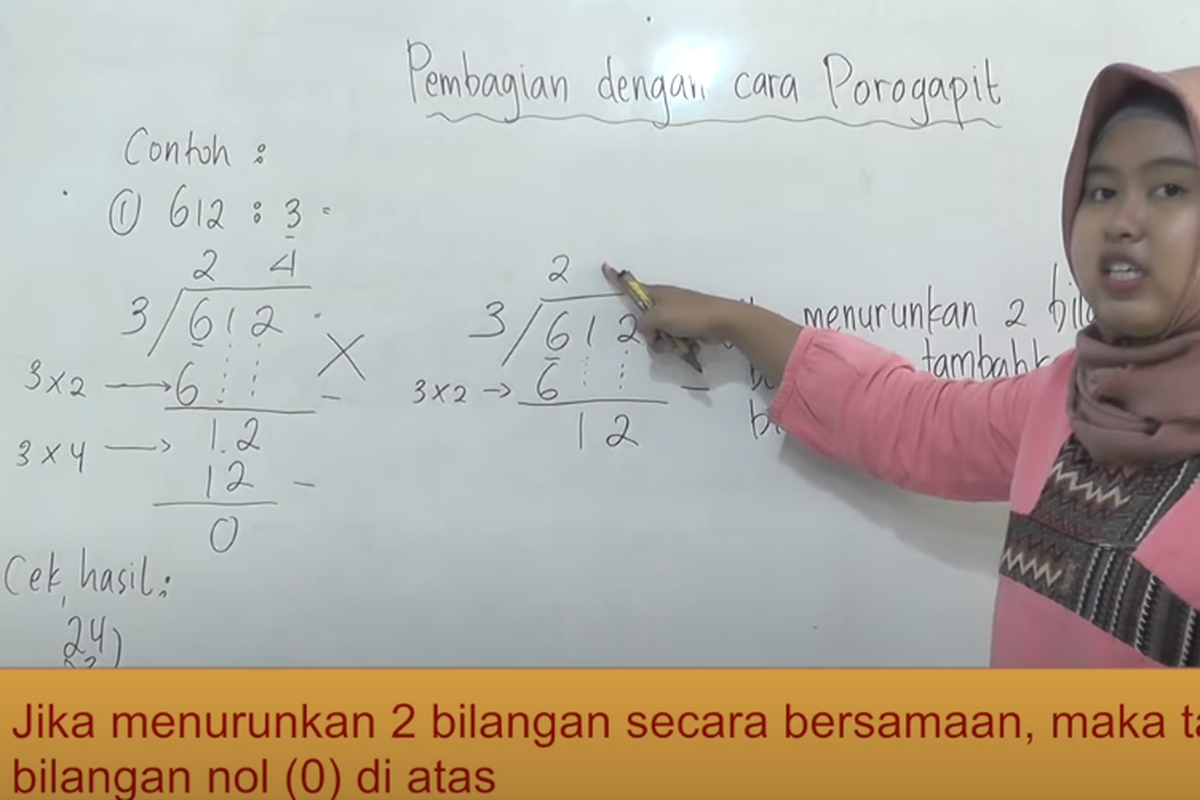 Pembagian dengan cara Porogapit
Contoh :
① 612 : 3 =
2 4
3 / 612
3 x 2 → 6
1 2
3 x 4 →
12 -
0
X
-
Cek hasil :
24
2
3 / 612
3 x 2 → 6 -
1 2
menurunkan 2
tambahk
Jika menurunkan 2 bilangan secara bersamaan, maka
bilangan nol (0) di atas